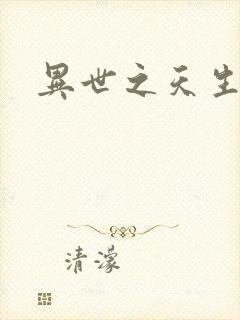 異世之天生
清濛